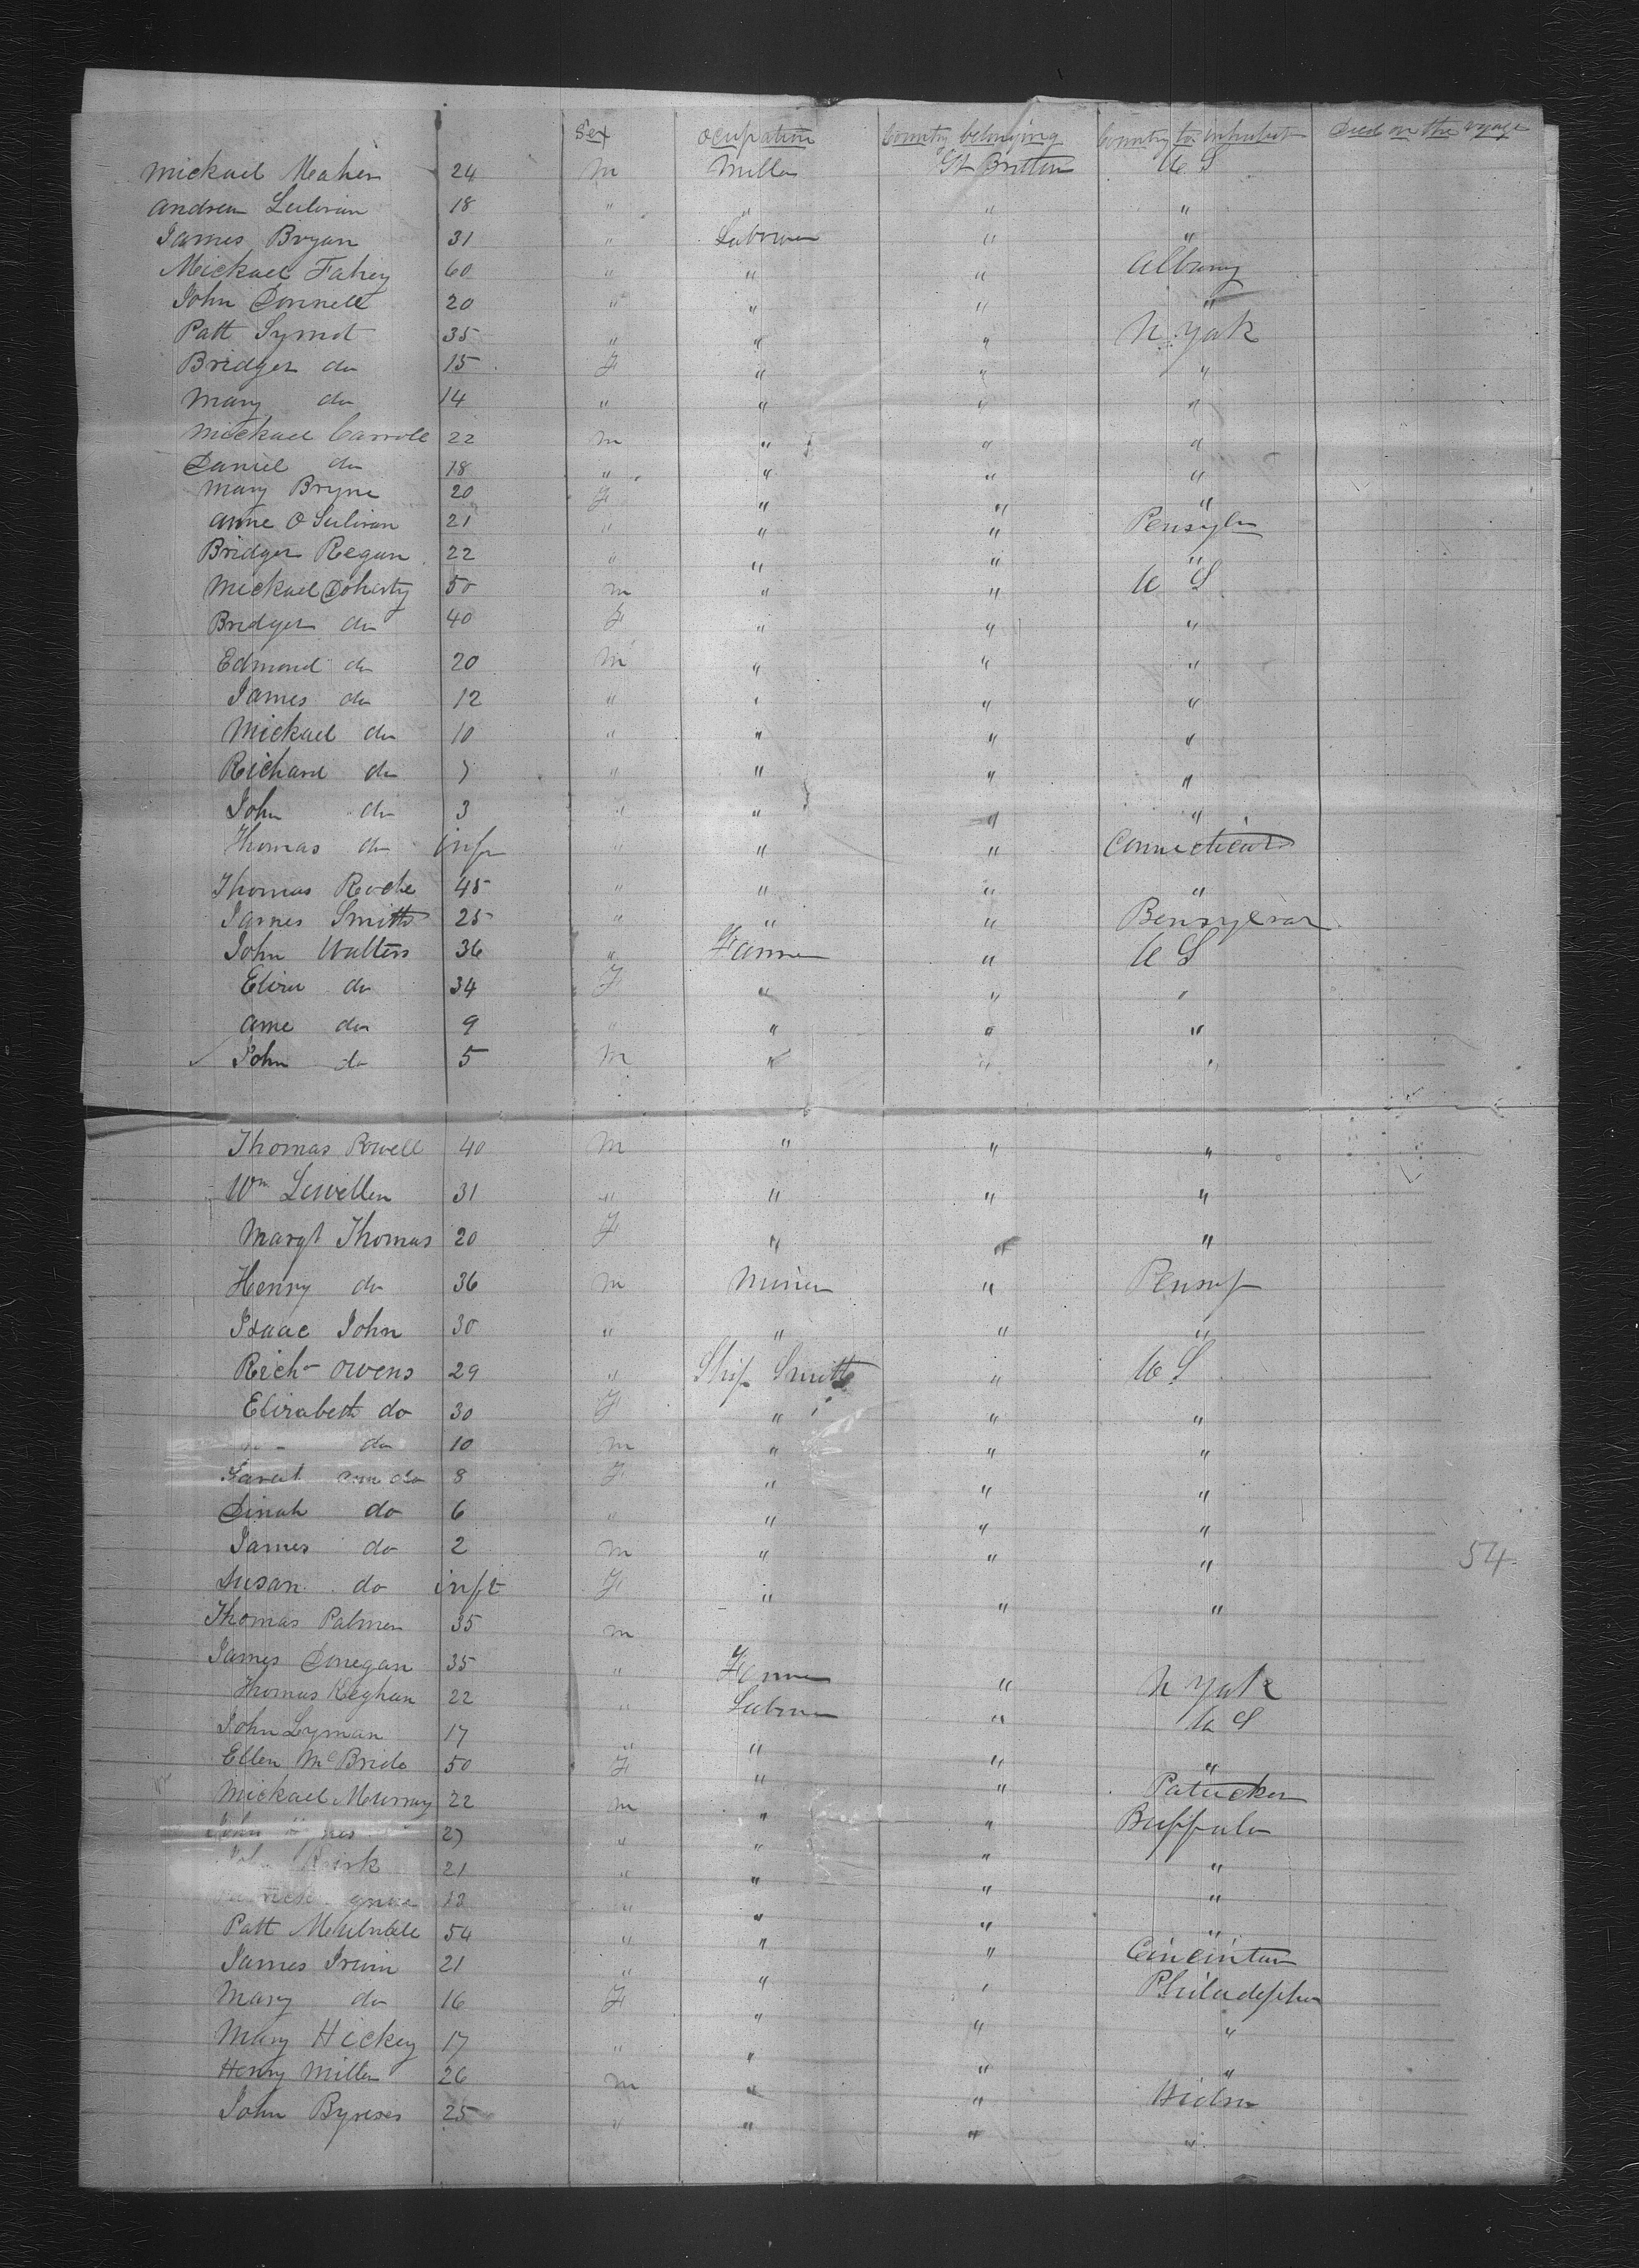 Sex ocupation Country belonging Country to inhabit Died on the voyage
Mickael Maher 24 m Miller Gt Britten U S
Andrew Sulivan 18 " " " "
James Bryan 31 " Labourer " "
Mickael Fahey 60 " " " Albany
John Donnell 20 " " " "
Patt Symot 35 " " " N York
Bridget do 15 F " " "
Mary do 14 " " " "
Mickael Carrole 22 m " " "
Daniel do 18 " " " "
Mary Bryne 20 F " " "
Anne O Sulivan 21 " " " Pensylv
Bridget Regan 22 " " " "
Mickael Doherty 50 m " " U S
Bridget do 40 F " " "
Edmond do 20 m " " "
James do 12 " " " "
Mickael do 10 " " " "
Richard do 7 " " " "
John do 3 " " " "
Thomas do inf " " " Connecticut
Thomas Roche 45 " " " "
James Smith 25 " " " Bensylvar
John Walters 36 " Farmer " U S
Eliza do 34 F " " "
Anne do 9 " " " "
John do 5 m " " "
Thomas Powell 40 m " " "
Wm Lewellen 31 " " " "
Margt Thomas 20 F " " "
Henry do 36 m Miner " Pensy
Isaac John 30 " " " "
Richd Owens 29 " Ship Smith " U S
Elizabeth do 30 F " " "
do 10 m " " "
Sarah Ann do 8 F " " "
Dinah do 6 " " " "
James do 2 m " " "
54
Susan do inft F " " "
Thomas Palmer 35 m
James Donegan 35 " Farmer " N York
Thomas Keghan 22 " Labourer " U S
John Lyman 17 " " " "
Ellen McBride 50 F " " Patucket
Mickael Murray 22 m " " Buffalo
John 27 " " " "
Kirk 21 " " " "
13 " " " "
Patt Mulvale 54 " " " Cincintan
James Irwin 21 " " " Philadelphia
Mary do 16 F " " "
Mary Hickey 17 " " " "
Henry Miller 26 m " "
John Byrnes 25 " " " "